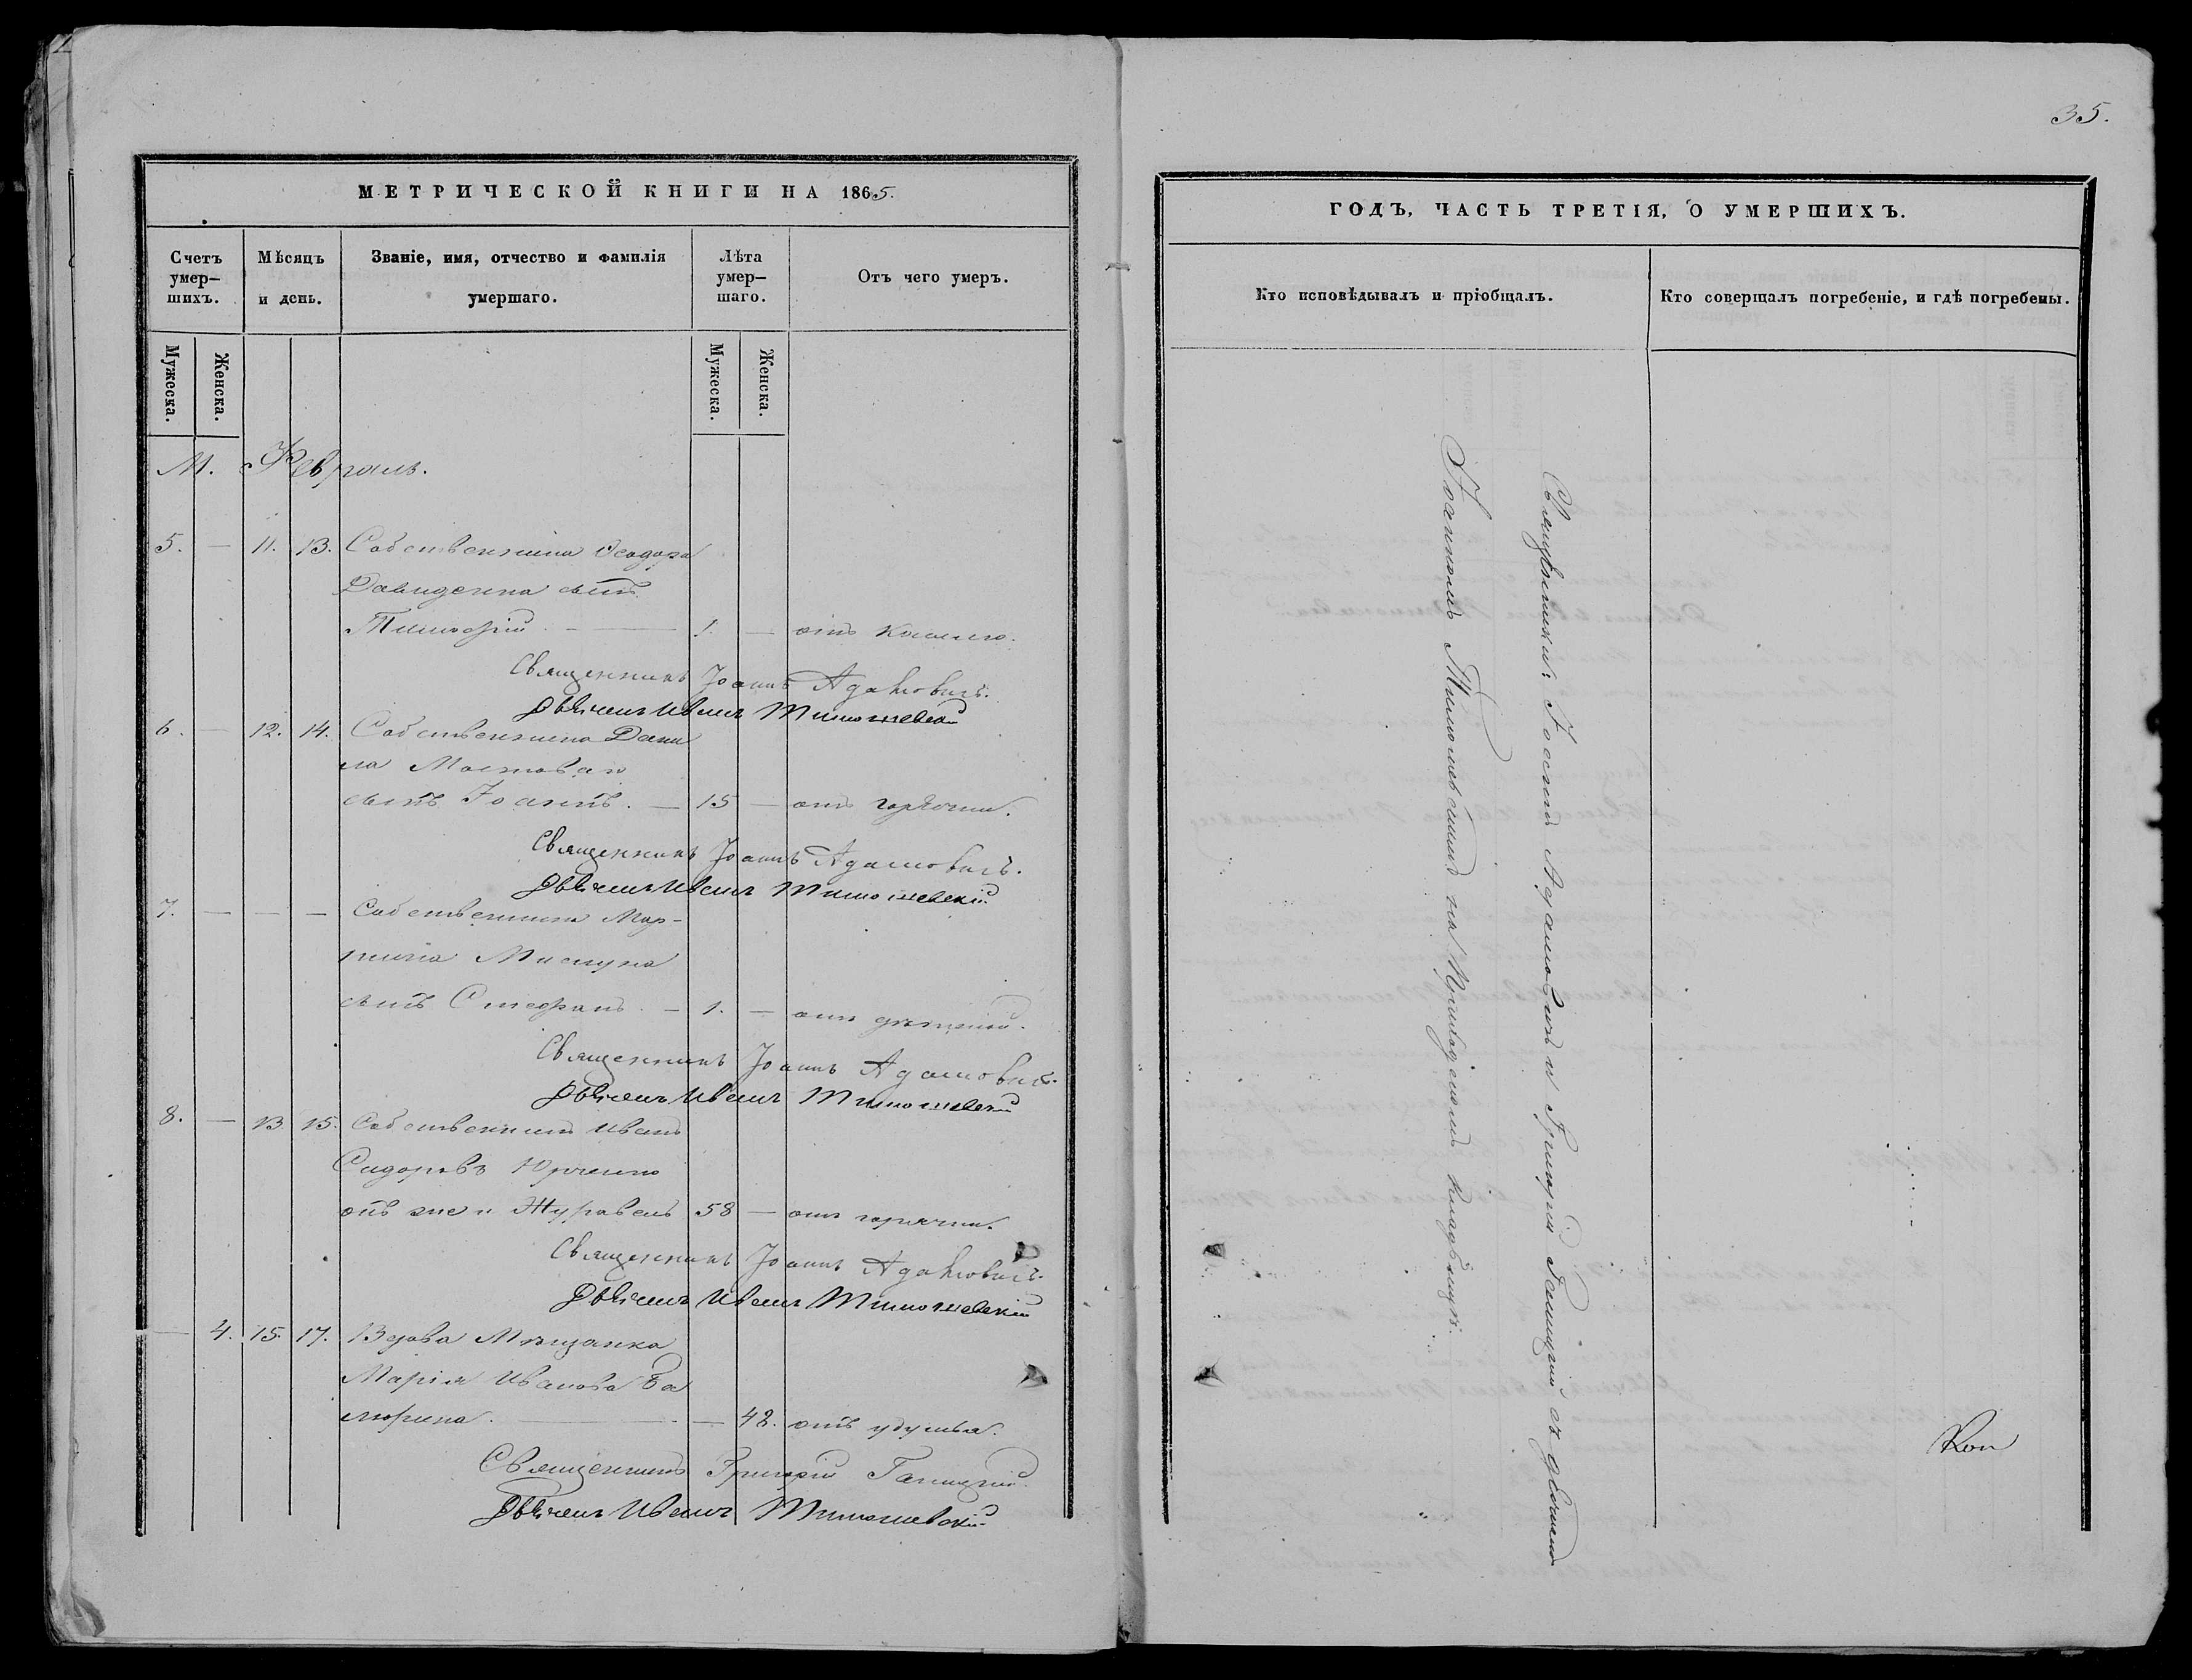 35.
МЕТРИЧЕСКОЙ КНИГИ НА 1865.
Счетъ умер-шихъ.
Мѣсяцъ и день.
Званіе, имя, отчество и фамилія умершаго.
Лѣта умер-шаго.
Отъ чего умеръ.
Мужеска.
Женска.
Мужеска.
Женска.
М. Февраль.
5. — 11. 13. Собственника Ѳеодора
Давиденка сынъ
Тимофій — 1. — отъ кашлю.
Священникъ Іоаннъ Адамовичъ.
Дьячекъ Иванъ Тимошевскій
6. — 12. 14. Собственника Дани
ла
сынъ Іоаннъ. — 15 — отъ горячки.
Священникъ Іоаннъ Адамовичъ.
Дьячекъ Иванъ Тимошевскій
7. — — — Собственника Мар-
сынъ Стефанъ — 1. — отъ
Священникъ Іоаннъ Адамовичъ.
Дьячекъ Иванъ Тимошевскій
8. — 13. 15. Собственникъ Иванъ
Сидоровъ Юрченко
онъ же и Журавель 58 — отъ горячки.
Священникъ Іоаннъ Адамовичъ.
Дьячекъ Иванъ Тимошевскій
— 4. 15. 17. Вдова Мѣщанка
Марія Иванова
— 48. отъ удушья.
Священникъ Григорій
Дьячекъ Иванъ Тимошевскій
ГОДЪ, ЧАСТЬ ТРЕТІЯ, О УМЕРШИХЪ.
Кто исповѣдывалъ и пріобщалъ.
Кто совершалъ погребеніе, и гдѣ погребены.
Священники: Іоаннъ Адамовичъ и Григорій съ дьячкомъ
Іоанномъ Тимошевскимъ на Приходскомъ кладбищѣ.